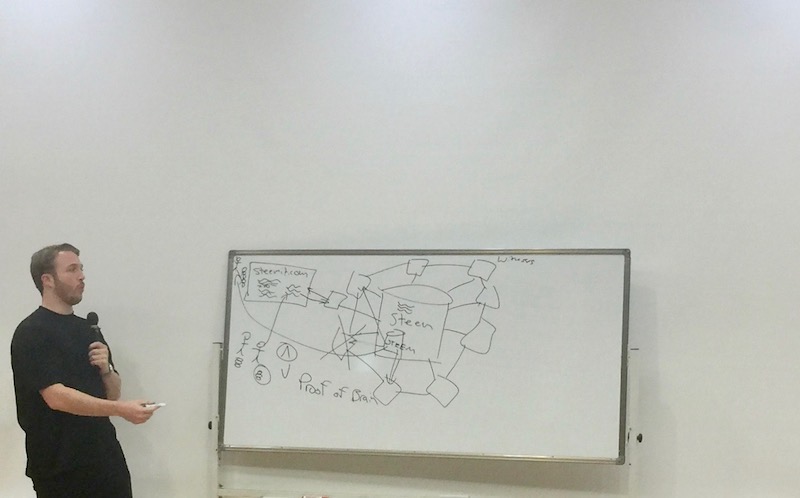 steemit.com
Witness
Steem
Steem
Proof of Brain